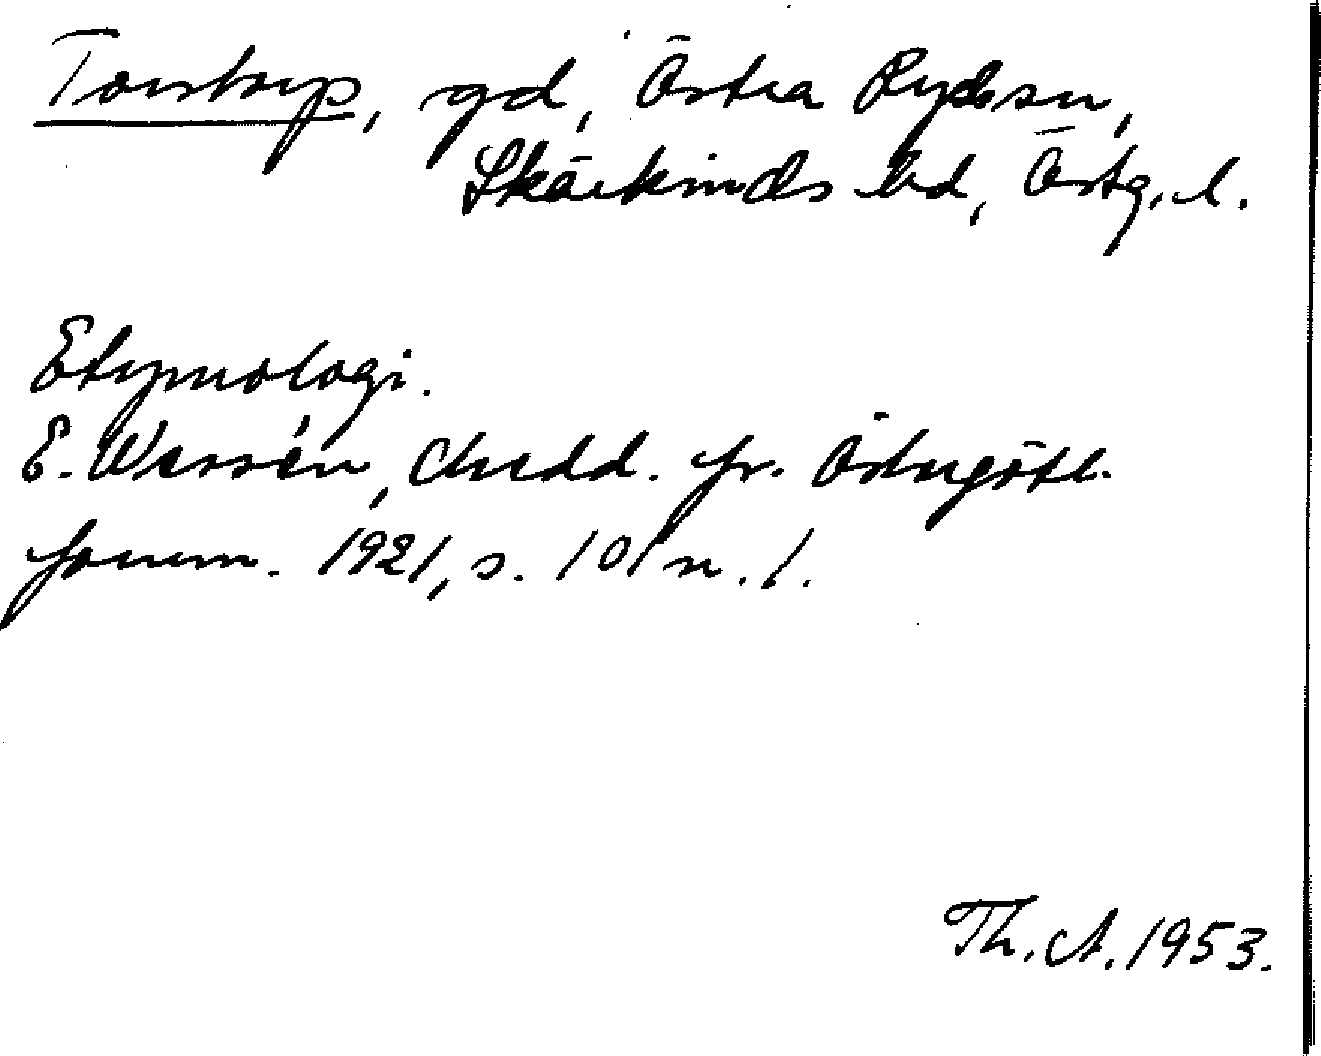 Torstorp, gd, Östra Ryds sn,
Skärkinds hd, Östg. l.
Etymologi.
E. Wessén, Medd. fr. Östergötl.
fornm. 1921, s. 101 n. 1.
Th. A. 1953.